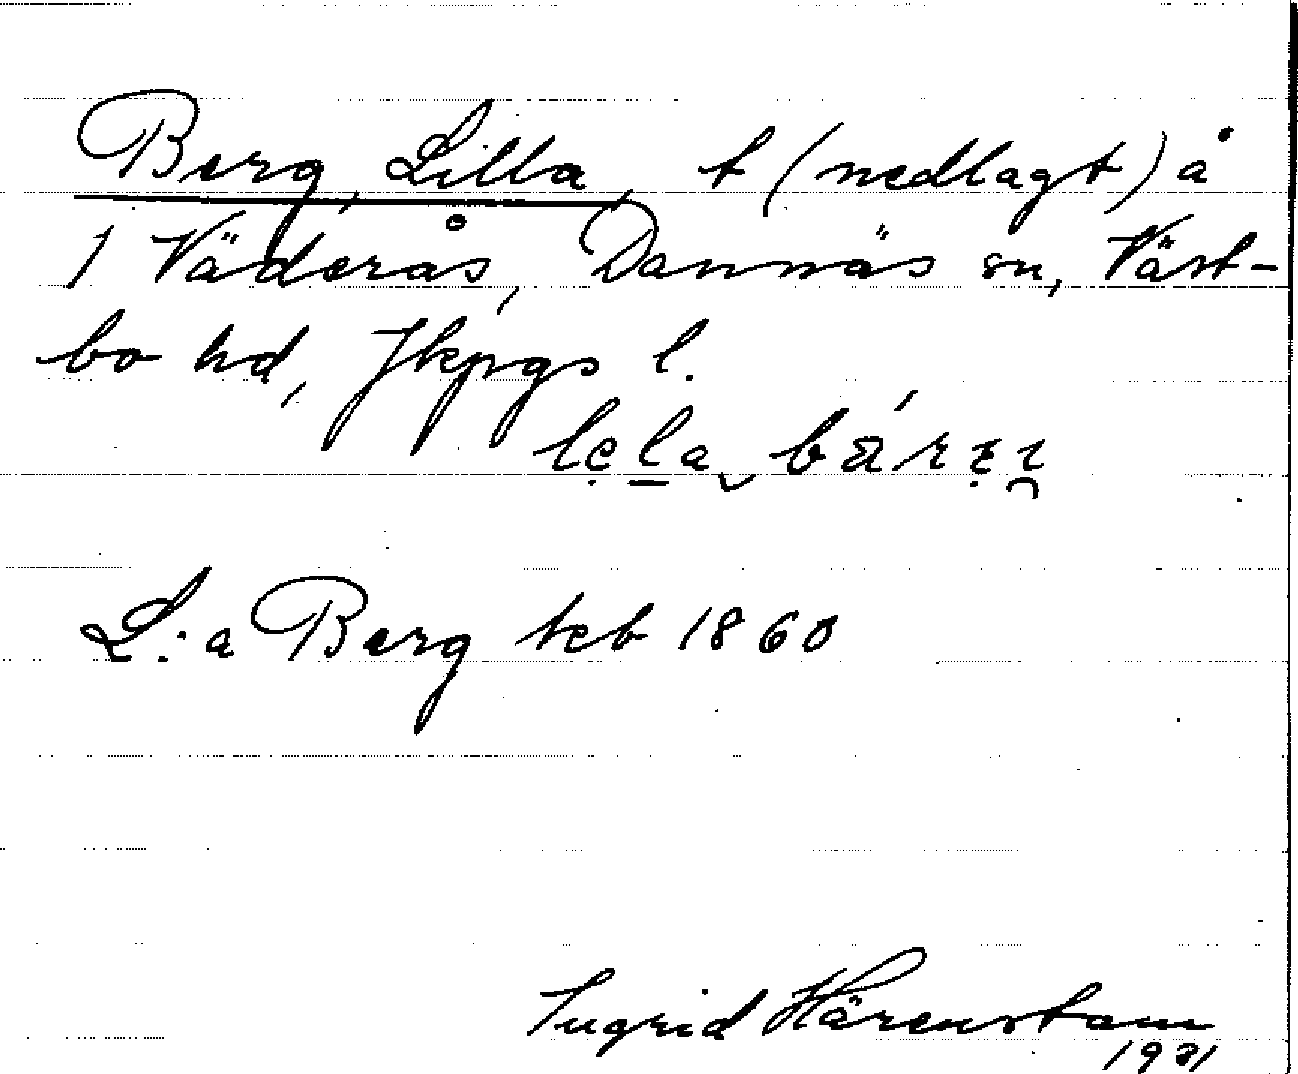 Berg, Lilla, t (nedlagt) å
1 Väderås, Dannäs sn, Väst-
bo hd, Jkpgs l.
L:a Berg teb 1860
Ingrid Härenstam
1931